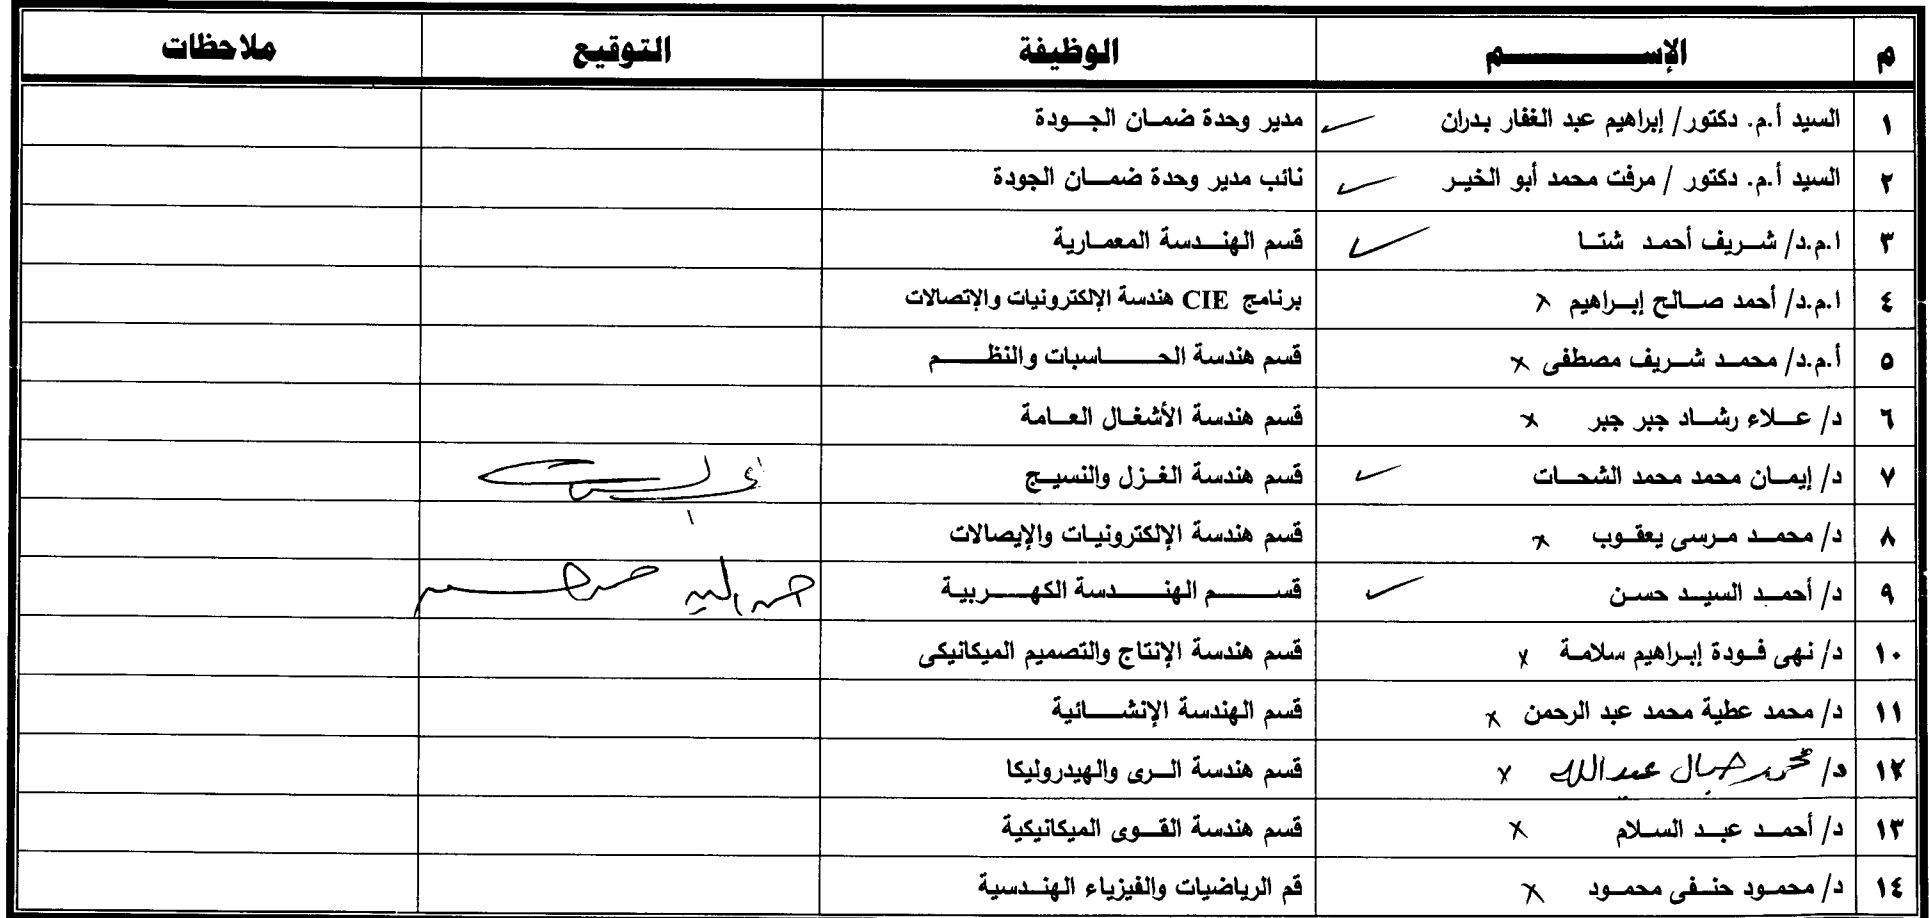 م الإســــــــم الوظيفة التوقيع ملاحظات
١ السيد أ.م. دكتور/ إبراهيم عبد الغفار بدران مدير وحدة ضمان الجودة
٢ السيد أ.م. دكتور / مرفت محمد أبو الخير نائب مدير وحدة ضمان الجودة
٣ ا.م.د/ شريف أحمد شتا قسم الهندسة المعمارية
٤ ا.م.د/ أحمد صالح إبراهيم برنامج CIE هندسة الإلكترونيات والإتصالات
٥ أ.م.د/ محمد شريف مصطفى قسم هندسة الحاسبات والنظم
٦ د/ علاء رشاد جبر جبر قسم هندسة الأشغال العامة
٧ د/ إيمان محمد محمد الشحات قسم هندسة الغزل والنسيج
٨ د/ محمد مرسى يعقوب قسم هندسة الإلكترونيات والإيصالات
٩ د/ أحمد السيد حسن قسم الهندسة الكهربية
١٠ د/ نهى فودة إبراهيم سلامة قسم هندسة الإنتاج والتصميم الميكانيكى
١١ د/ محمد عطية محمد عبد الرحمن قسم الهندسة الإنشائية
١٢ د/ محمد جمال عبدالله قسم هندسة الرى والهيدروليكا
١٣ د/ أحمد عبد السلام قسم هندسة القوى الميكانيكية
١٤ د/ محمود حنفى محمود قم الرياضيات والفيزياء الهندسية